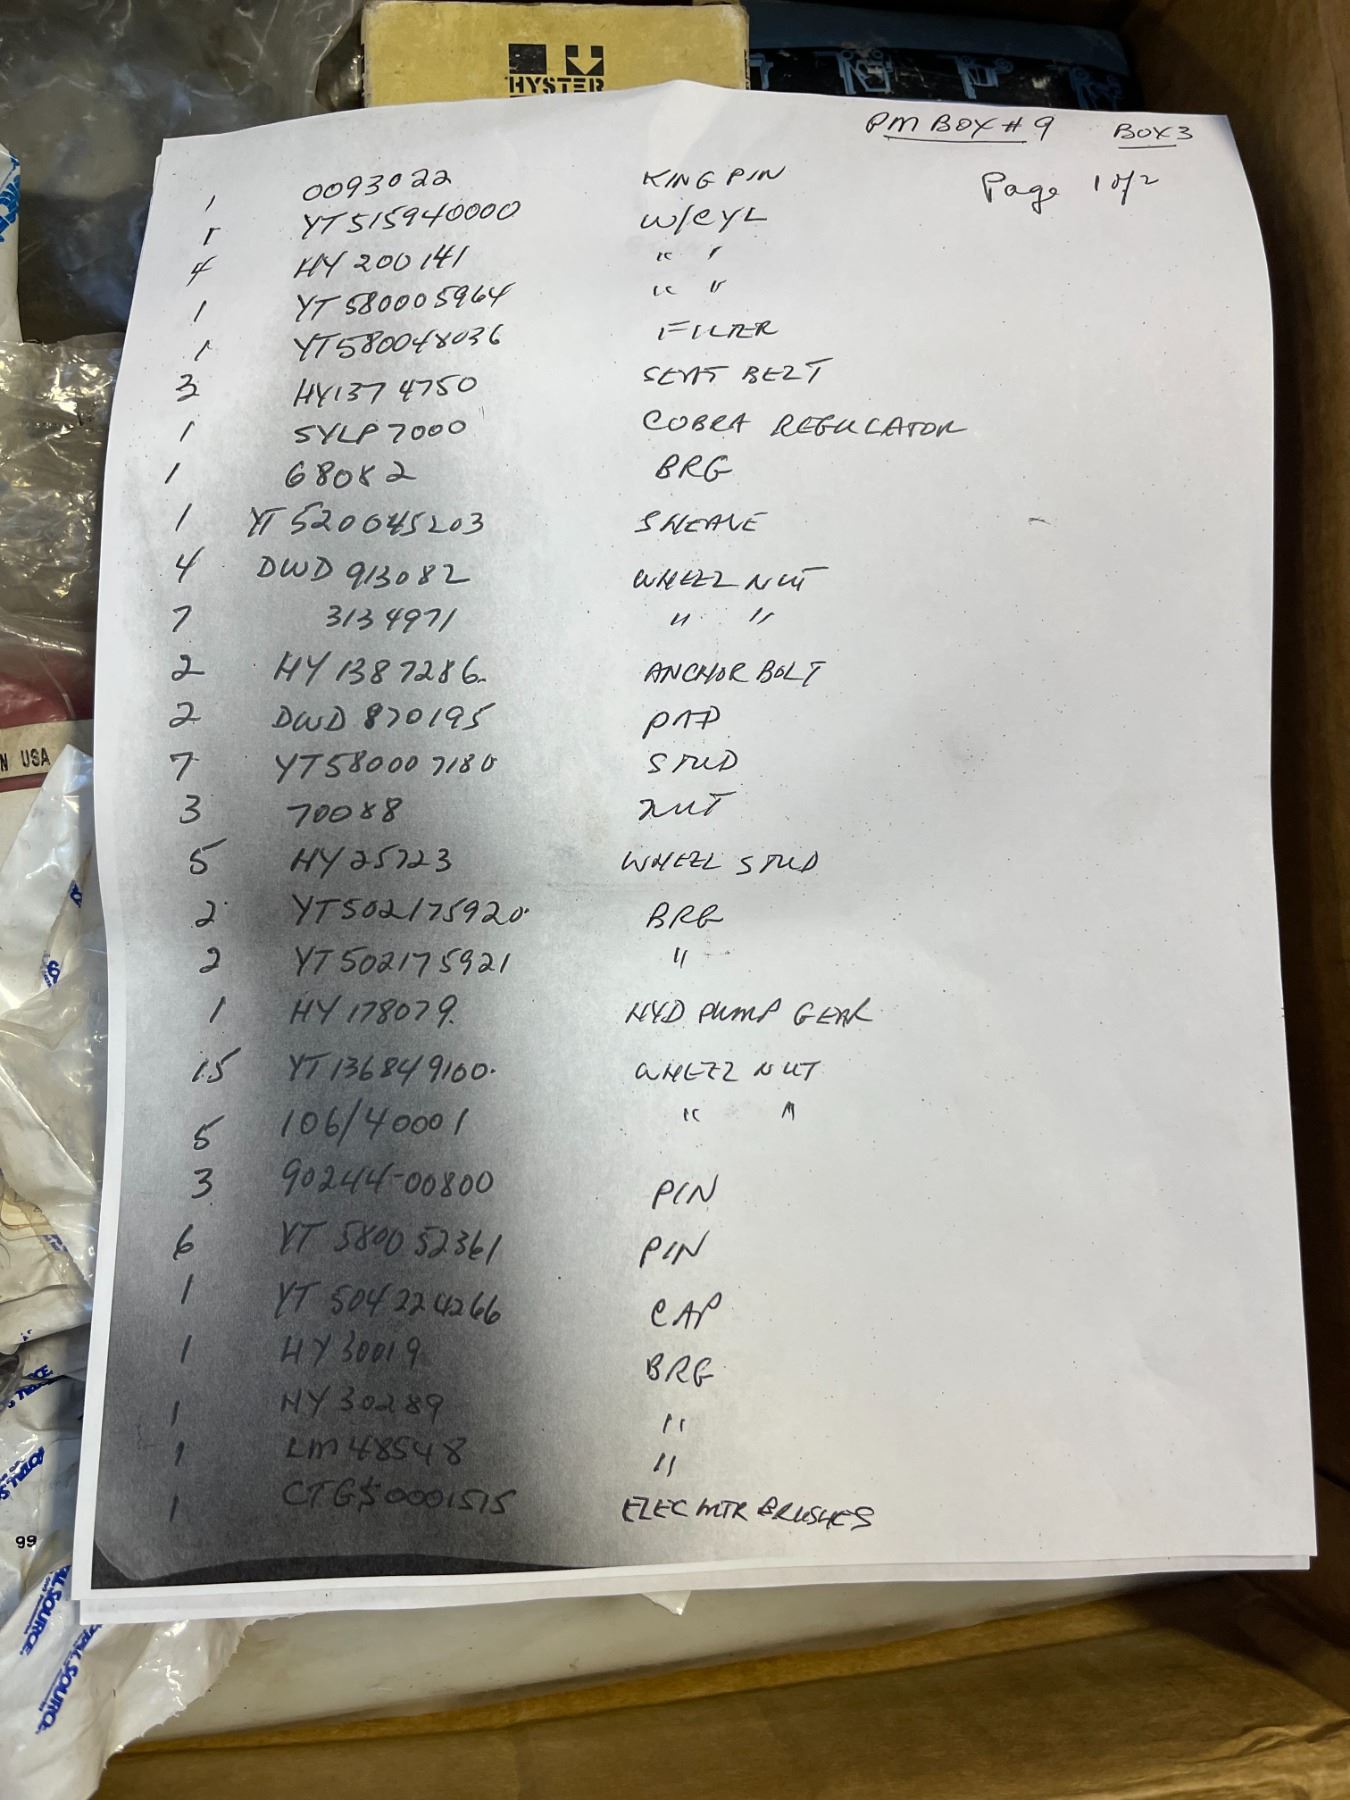 HYSTER
PM BOX # 9 BOX 3
Page 1 of 2
1 0093022 KING PIN
1 YT515940000 W/CYL
4 HY 200141 " "
1 YT 580005964 " "
1 YT580048036 FILTER
3 HY1374750 SEAT BELT
1 SYLP7000 COBRA REGULATOR
1 68082 BRG
1 YT 520045203 SHEAVE
4 DWD 913082 WHEEL NUT
7 3134971 " "
2 HY 1387286 ANCHOR BOLT
2 DWD 870195 PAD
7 YT580007180 STUD
3 70088 NUT
5 HY25723 WHEEL STUD
2 YT502175920 BRG
2 YT502175921 "
1 HY 178079 HYD PUMP GEAR
15 YT136849100 WHEEL NUT
5 106/40001 " "
3 90244-00800 PIN
6 YT 580052361 PIN
1 YT 504224266 CAP
1 HY30019 BRG
1 HY30289 "
1 LM48548 "
1 ELEC MTR BRUSHES
N USA
99
TOTAL SOURCE